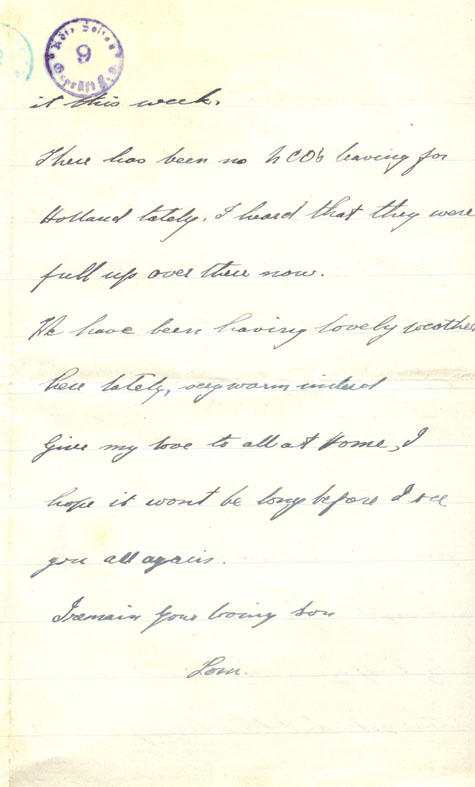 Kdtr Soltau
9
Geprüft F.a.
it this week.
There has been no NCOs leaving for
Holland lately. I heard that they were
full up over there now.
We have been having lovely weather
here lately, very warm indeed
Give my love to all at Home, I
hope it wont be long before I see
you all again.
I remain your loving son
Tom.